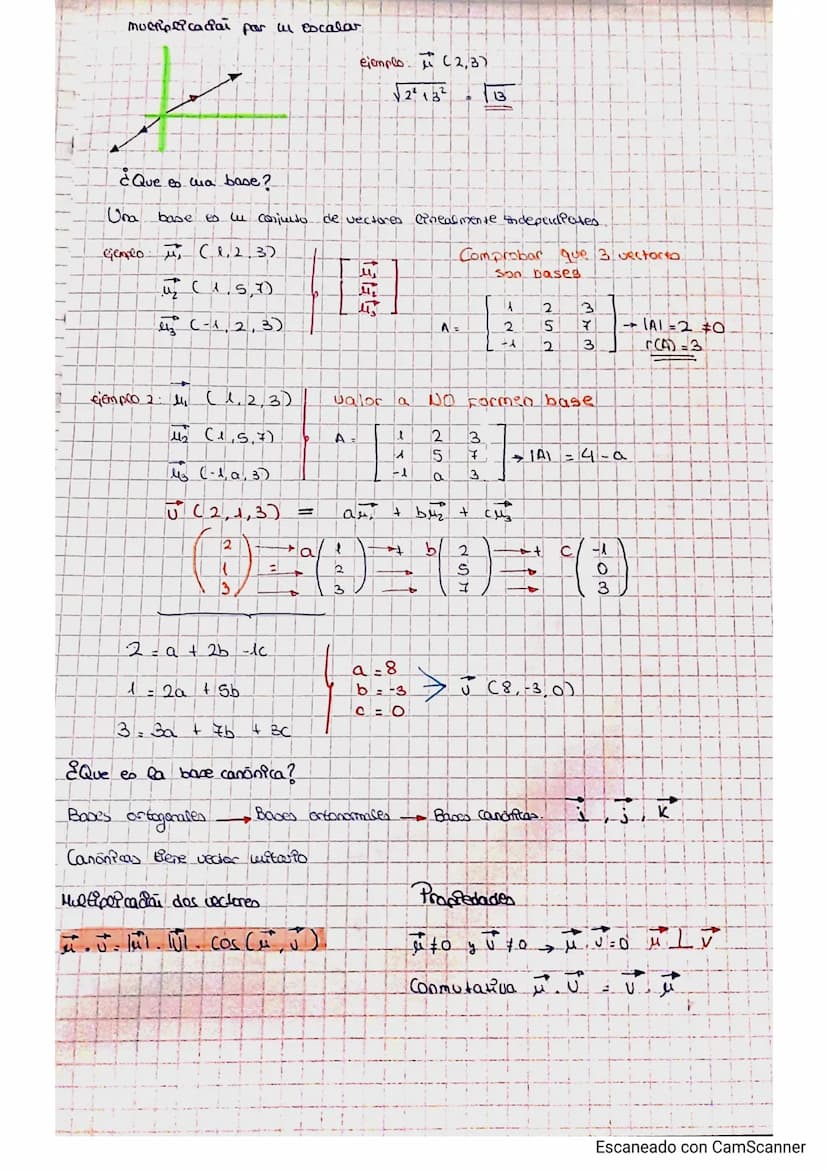 multiplicación por un escalar
ejemplo. u⃗ (2,3)
√2²+3² = √13
¿Que es una base?
Una base es un conjunto de vectores linealmente independientes
ejemplo u⃗₁ (1,2,3)
u⃗₂ (1,5,7)
u⃗₃ (-1,2,3)
[u⃗₁ u⃗₂ u⃗₃]
Comprobar que 3 vectores
son bases
A = [1 2 3
2 5 7
-1 2 3] → |A| = 2 ≠ 0
r(A) = 3
ejemplo 2: u⃗₁ (1,2,3)
u⃗₂ (1,5,7)
u⃗₃ (-1,a,3)
valor a NO formen base
A = [1 2 3
1 5 7
-1 a 3] → |A| = 4-a
v⃗ (2,1,3) = au⃗₁ + bu⃗₂ + cu⃗₃
(2 1 3) = a (1 2 3) + b (2 5 7) + c (-1 0 3)
2 = a + 2b -1c
1 = 2a + 5b
3 = 3a + 7b + 3c
a = 8
b = -3
c = 0
v⃗ (8,-3,0)
¿Que es la base canónica?
Bases ortogonales → Bases ortonormales → Bases canónicas. i⃗, j⃗, k⃗
Canónicas tiene vector unitario
Multiplicación dos vectores
u⃗ · v⃗ = |u⃗| · |v⃗| · cos (u⃗, v⃗)
Propiedades
u⃗ ≠ 0 y v⃗ ≠ 0 → u⃗ · v⃗ = 0 u⃗ ⊥ v⃗
Conmutativa u⃗ · v⃗ = v⃗ · u⃗
Escaneado con CamScanner